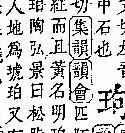 中石也
切集韻韻會匹
而且黃名明
珀陶弘景曰松脂
人地為琥珀又